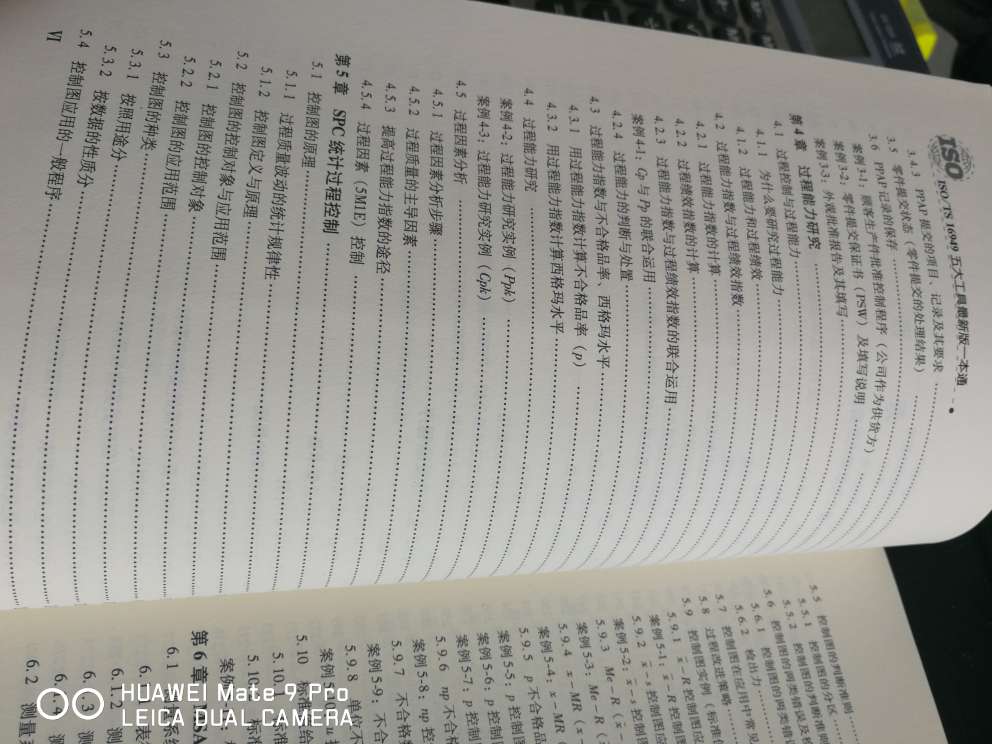 ISO
ISO/TS 16949 五大工具最新版一本通
3.4.3 PPAP 提交的项目、记录及其要求
3.5 零件提交状态（零件提交的处理结果）
3.6 PPAP 记录的保存
案例 3-1：顾客生产件批准控制程序（公司作为供货方）
案例 3-2：零件提交保证书（PSW）及填写说明
案例 3-3：外观批准报告及其填写
第 4 章 过程能力研究
4.1 过程控制与过程能力
4.1.1 为什么要研究过程能力
4.1.2 过程能力和过程绩效
4.2 过程能力指数与过程绩效指数
4.2.1 过程能力指数的计算
4.2.2 过程绩效指数的计算
4.2.3 过程能力指数与过程绩效指数的联合运用
案例 4-1：Cp 与 Pp 的联合运用
4.2.4 过程能力的判断与处置
4.3 过程能力指数与不合格品率、西格玛水平
4.3.1 用过程能力指数计算不合格品率（p）
4.3.2 用过程能力指数计算西格玛水平
4.4 过程能力研究
案例 4-2：过程能力研究实例（Ppk）
案例 4-3：过程能力研究实例（Cpk）
4.5 过程因素分析
4.5.1 过程因素分析步骤
4.5.2 过程质量的主导因素
4.5.3 提高过程能力指数的途径
4.5.4 过程因素（5M1E）控制
第 5 章 SPC 统计过程控制
5.1 控制图的原理
5.1.1 过程质量波动的统计规律性
5.1.2 控制图定义与原理
5.2 控制图的控制对象与应用范围
5.2.1 控制图的控制对象
5.2.2 控制图的应用范围
5.3 控制图的种类
5.3.1 按照用途分
5.3.2 按数据的性质分
5.4 控制图应用的一般程序
VI
5.5 控制图的判断准则
5.5.1 控制图的分区
5.5.2 控制图的判断准则
5.6 控制图的两类错误及检
5.6.1 控制图的两类错
5.6.2 检出力
5.7 控制图在应用中常见
5.8 过程改进策略
5.9 控制图实例（标准值
5.9.1 x̄-R 控制图应
案例 5-1：x̄-R 控制图
5.9.2 x̄-s 控制图应
案例 5-2：x̄-s 控制图
5.9.3 Me-R（x̃-
案例 5-3：Me-R（x̃
5.9.4 x-MR（
案例 5-4：x-MR（
5.9.5 p 不合格品
案例 5-5：p 控制图
案例 5-6：p 控制
案例 5-7：p 控制
5.9.6 np 不合格
案例 5-8：np 控
5.9.7 不合格数
案例 5-9：不合
5.9.8 单位不
5.10 标准值给
5.10
第 6 章 MSA
6.1
6.2 测量系
HUAWEI Mate 9 Pro
LEICA DUAL CAMERA